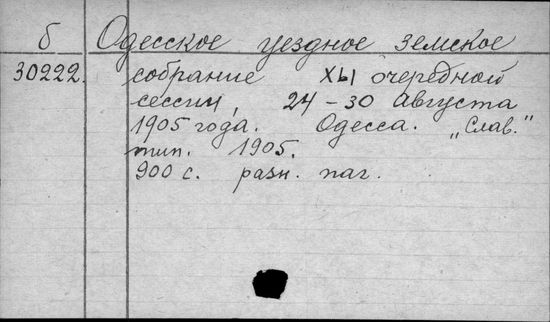 б Одесское уездное земское
30222. собрание XLI очередной
сессии, 24-30 августа
1905 года. Одесса. "Слав."
тип. 1905.
900 с. разн. паг.